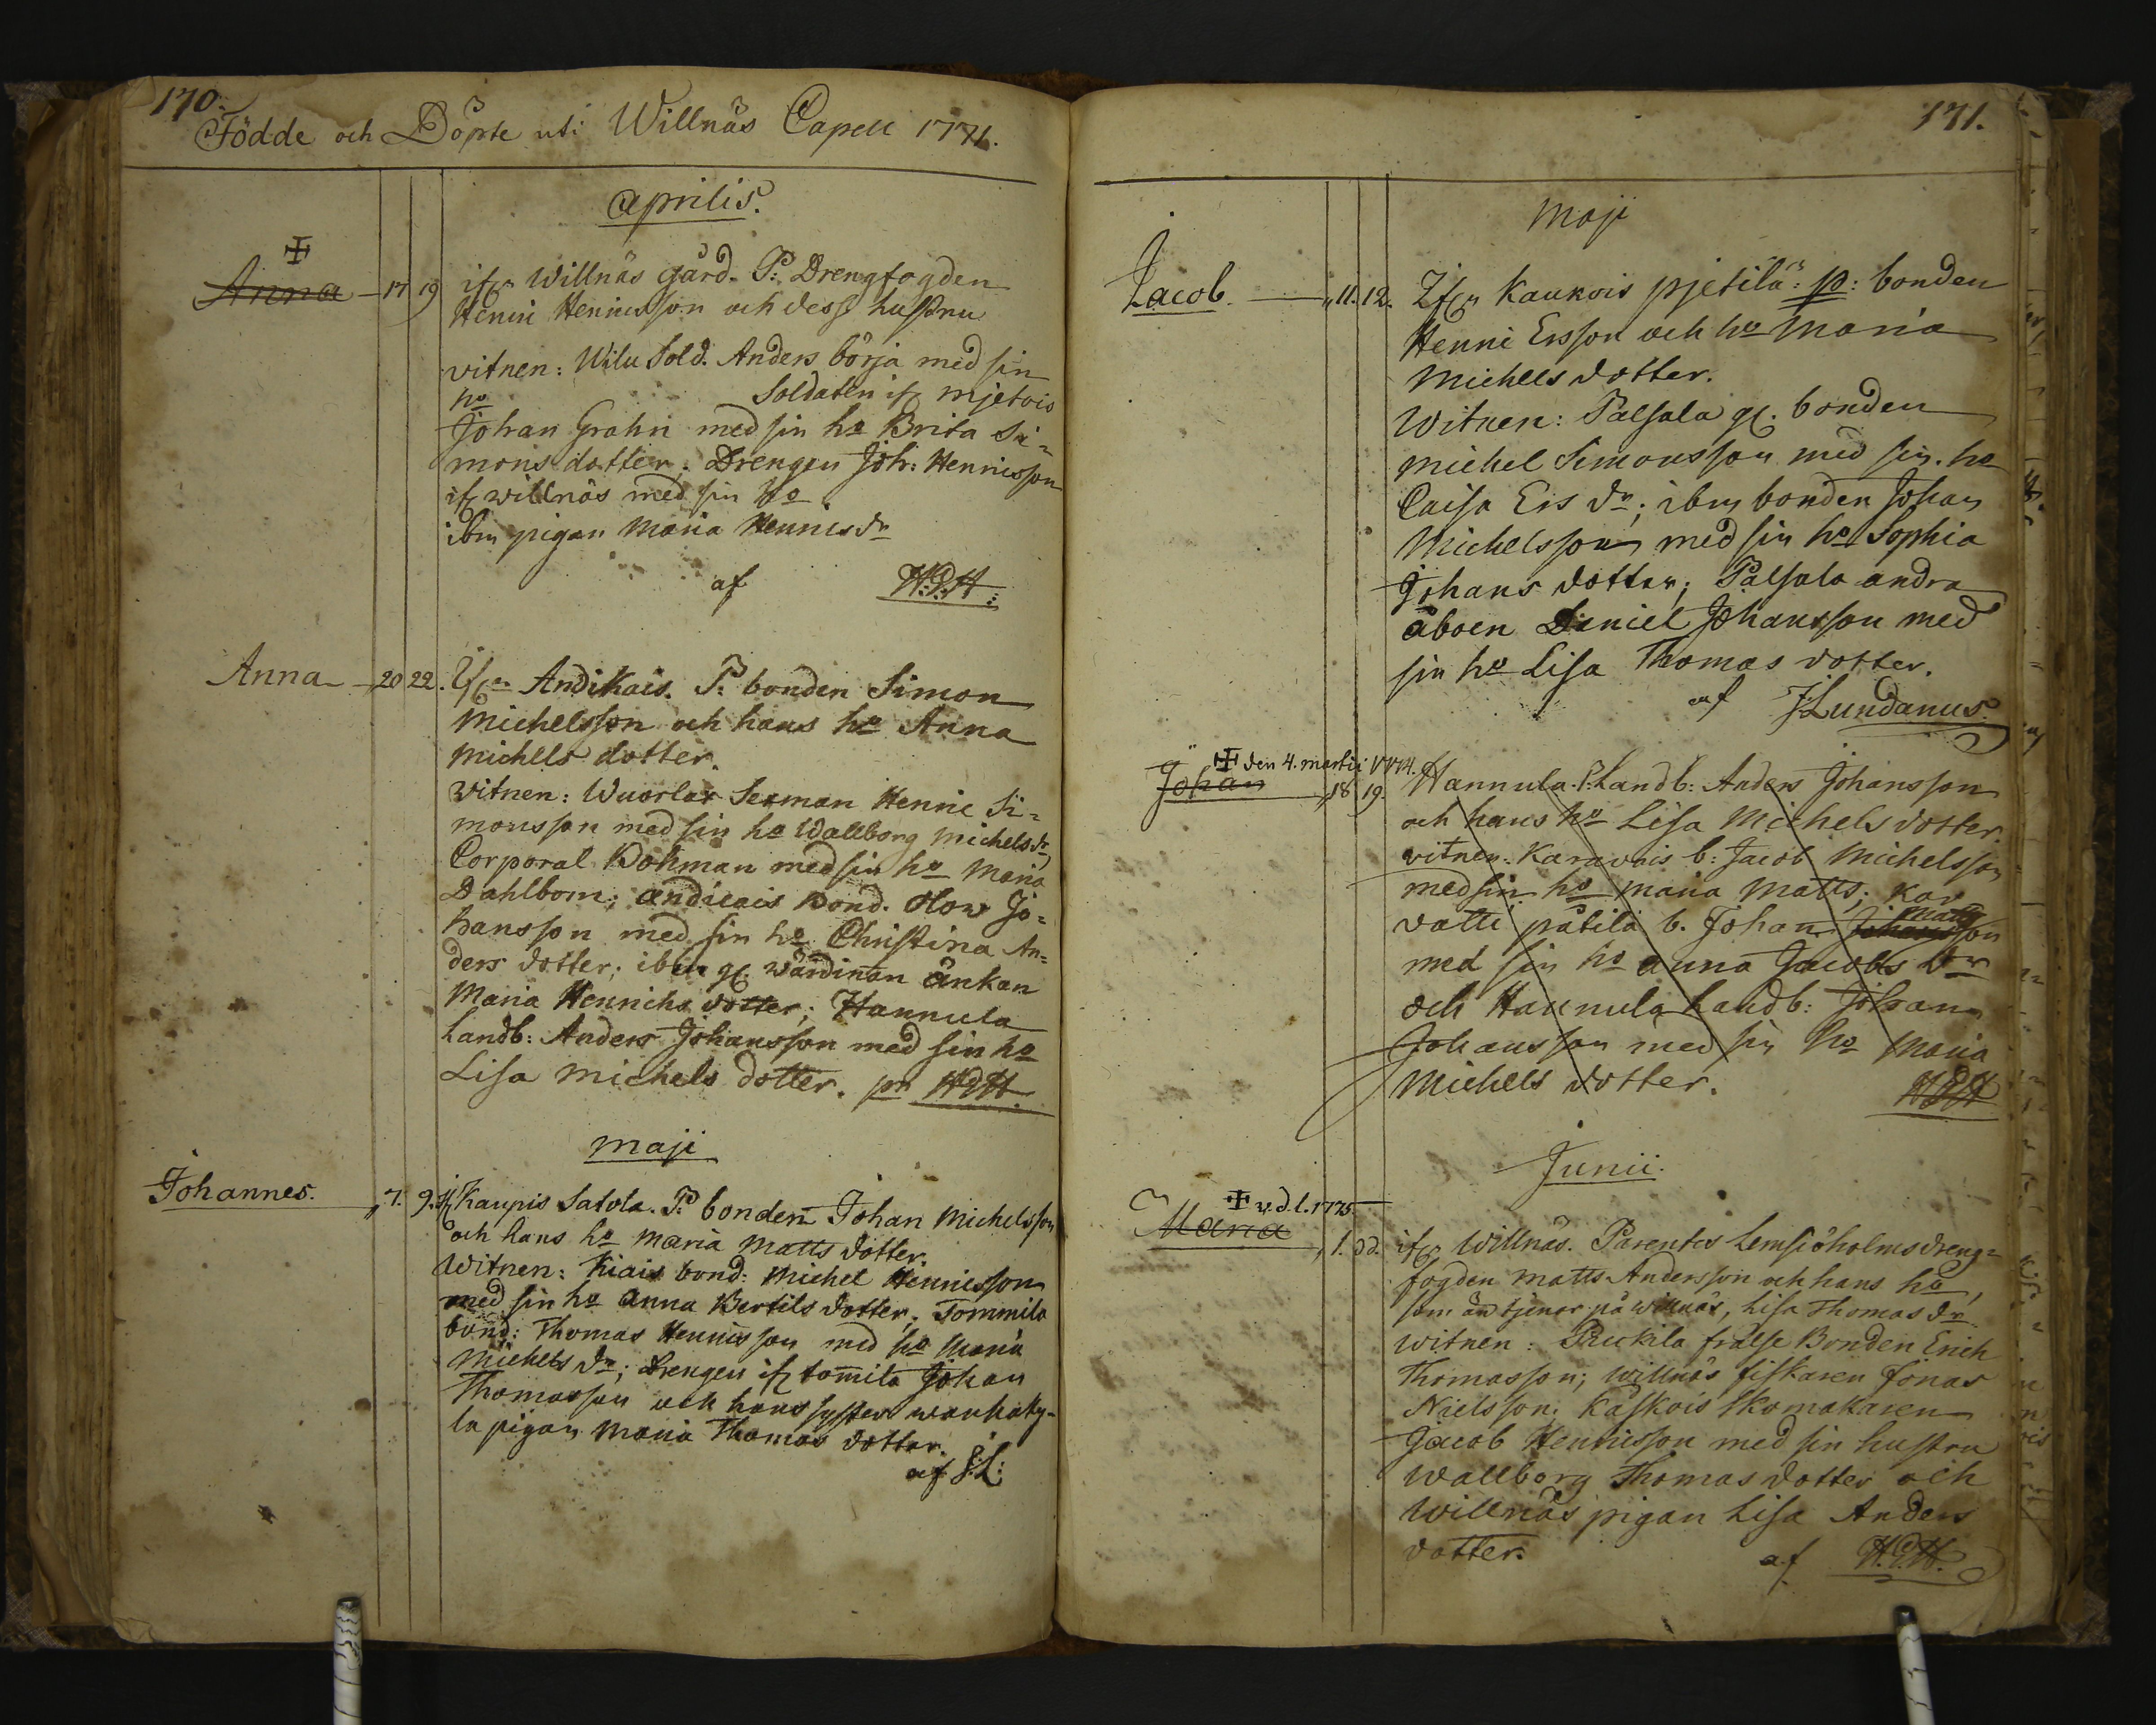 170.
Födde och Döpte uti Willnäs Capell 1771.
Aprilis.
Anna 17 19 ifrn Willnäs gård. P: Drengfogden
Henric Henricsson och dess hustru
vitnen: Wilu Sold. Anders börja med sin
ho Soldaten if mjetois
Johan Grahn med sin ho Brita Si=
mons dotter; Drengen Joh: Henricsson
if willnäs med sin ho
ibm pigan Maria Henrics dr
af H.P.H:
Anna 20 22. Ifrn Andikais. P: bonden Simon
Michelsson och hans ho Anna
Michels dotter.
Vitnen: Wuorlax Sexman Henric Si=
monsson med sin ho Wallborg Michels dr
Corporal Bohman med sin ho Maria
Dahlbom; Andicais Bond. Olow Jo=
hansson med sin ho Christina An=
ders dotter; ibm gl. wärdinan änkan
Maria Henrichs dotter; Hannula
Landb: Anders Johansson med sin ho
Lisa Michels dotter. pr HPH.
Maji
Johannes. 7. 9. if Kaupis Satola. P: bonden Johan Michelsson
och hans ho Maria Matts dotter.
Witnen: Kiais bond: Michel Henricsson
med sin ho Anna Bertils dotter; Tommila
bond: Thomas Henricsson med ho Maria
Michels dr; Drengen if tomila Johan
Thomasson och hans syster wanhaky-
la pigan Maria Thomas dotter.
af J:L:
171.
Maji
Jacob. 11. 12. Ifrn Kaukois pjetilä: p: bonden
Henric Ersson och ho Maria
Michels dotter.
Witnen: Palsala gl. bonden
Michel Simonsson med sin ho
Caisa Ers dr; ibm bonden Johan
Michelsson med sin ho Sophia
Johans dotter; Palsala andra
åboen Daniel Johansson med
sin ho Lisa Thomas dotter.
af JLundanus.
den 4. martii 1774.
Johan 18 19. Hannula. P: Landb: Anders Johansson
och hans ho Lisa Michels dotter
vitnen: Karavais b: Jacob Michelsson
med sin ho Maria Matts; Kar
vatti pätilä b. Johan Johansson Matts
med sin ho Anna Jacobs dr
och Hannula Landb: Johan
Johansson med sin ho Maria
Michels dotter. HPH
Junii.
v. d. l. 1775
Maria 1. dd. ifrn Willnäs. Parentes Lemsiöholms dreng=
fogden Matts Andersson och hans ho,
som än tjenar på Willnäs, Lisa Thomas dr
witnen: Ruckila frälse Bonden Erich
Thomasson; willnäs fiskaren Jonas
Nielsson; Kaskois Skomakaren
Jacob Henricsson med sin hustru
Wallborg Thomas dotter och
Willnäs pigan Lisa Anders
dotter. af H.P.H.